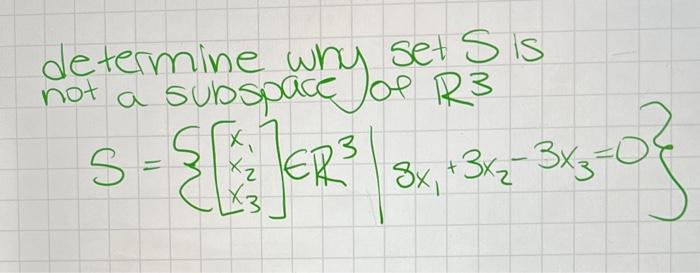 determine why set S is
not a subspace of R3
S = {[x₁ x₂ x₃] ∈ ℝ³ | 8x₁ + 3x₂ - 3x₃ = 0}